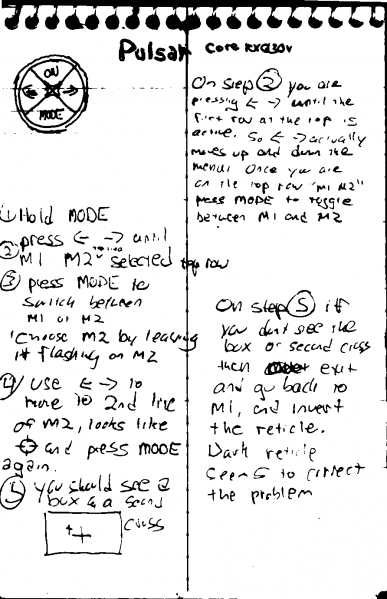 Pulsar Core RXQ30V
ON
← →
MODE
① Hold MODE
② press ← → until
M1 M2 selected top row
③ press MODE to
switch between
M1 or M2
Choose M2 by leaving
it flashing on M2
④ use ← → to
move to 2nd line
of M2, looks like
⌖ and press MODE
again.
⑤ you should see a
box w a second
cross
On step ② you are
pressing ← → until the
first row at the top is
active. So ← → actually
moves up and down the
menu. Once you are
on the top row "M1 M2"
press MODE to toggle
between M1 and M2
On step ⑤ if
you dont see the
box or second cross
then exit
and go back to
M1, and invert
the reticle.
Dark reticle
seems to correct
the problem